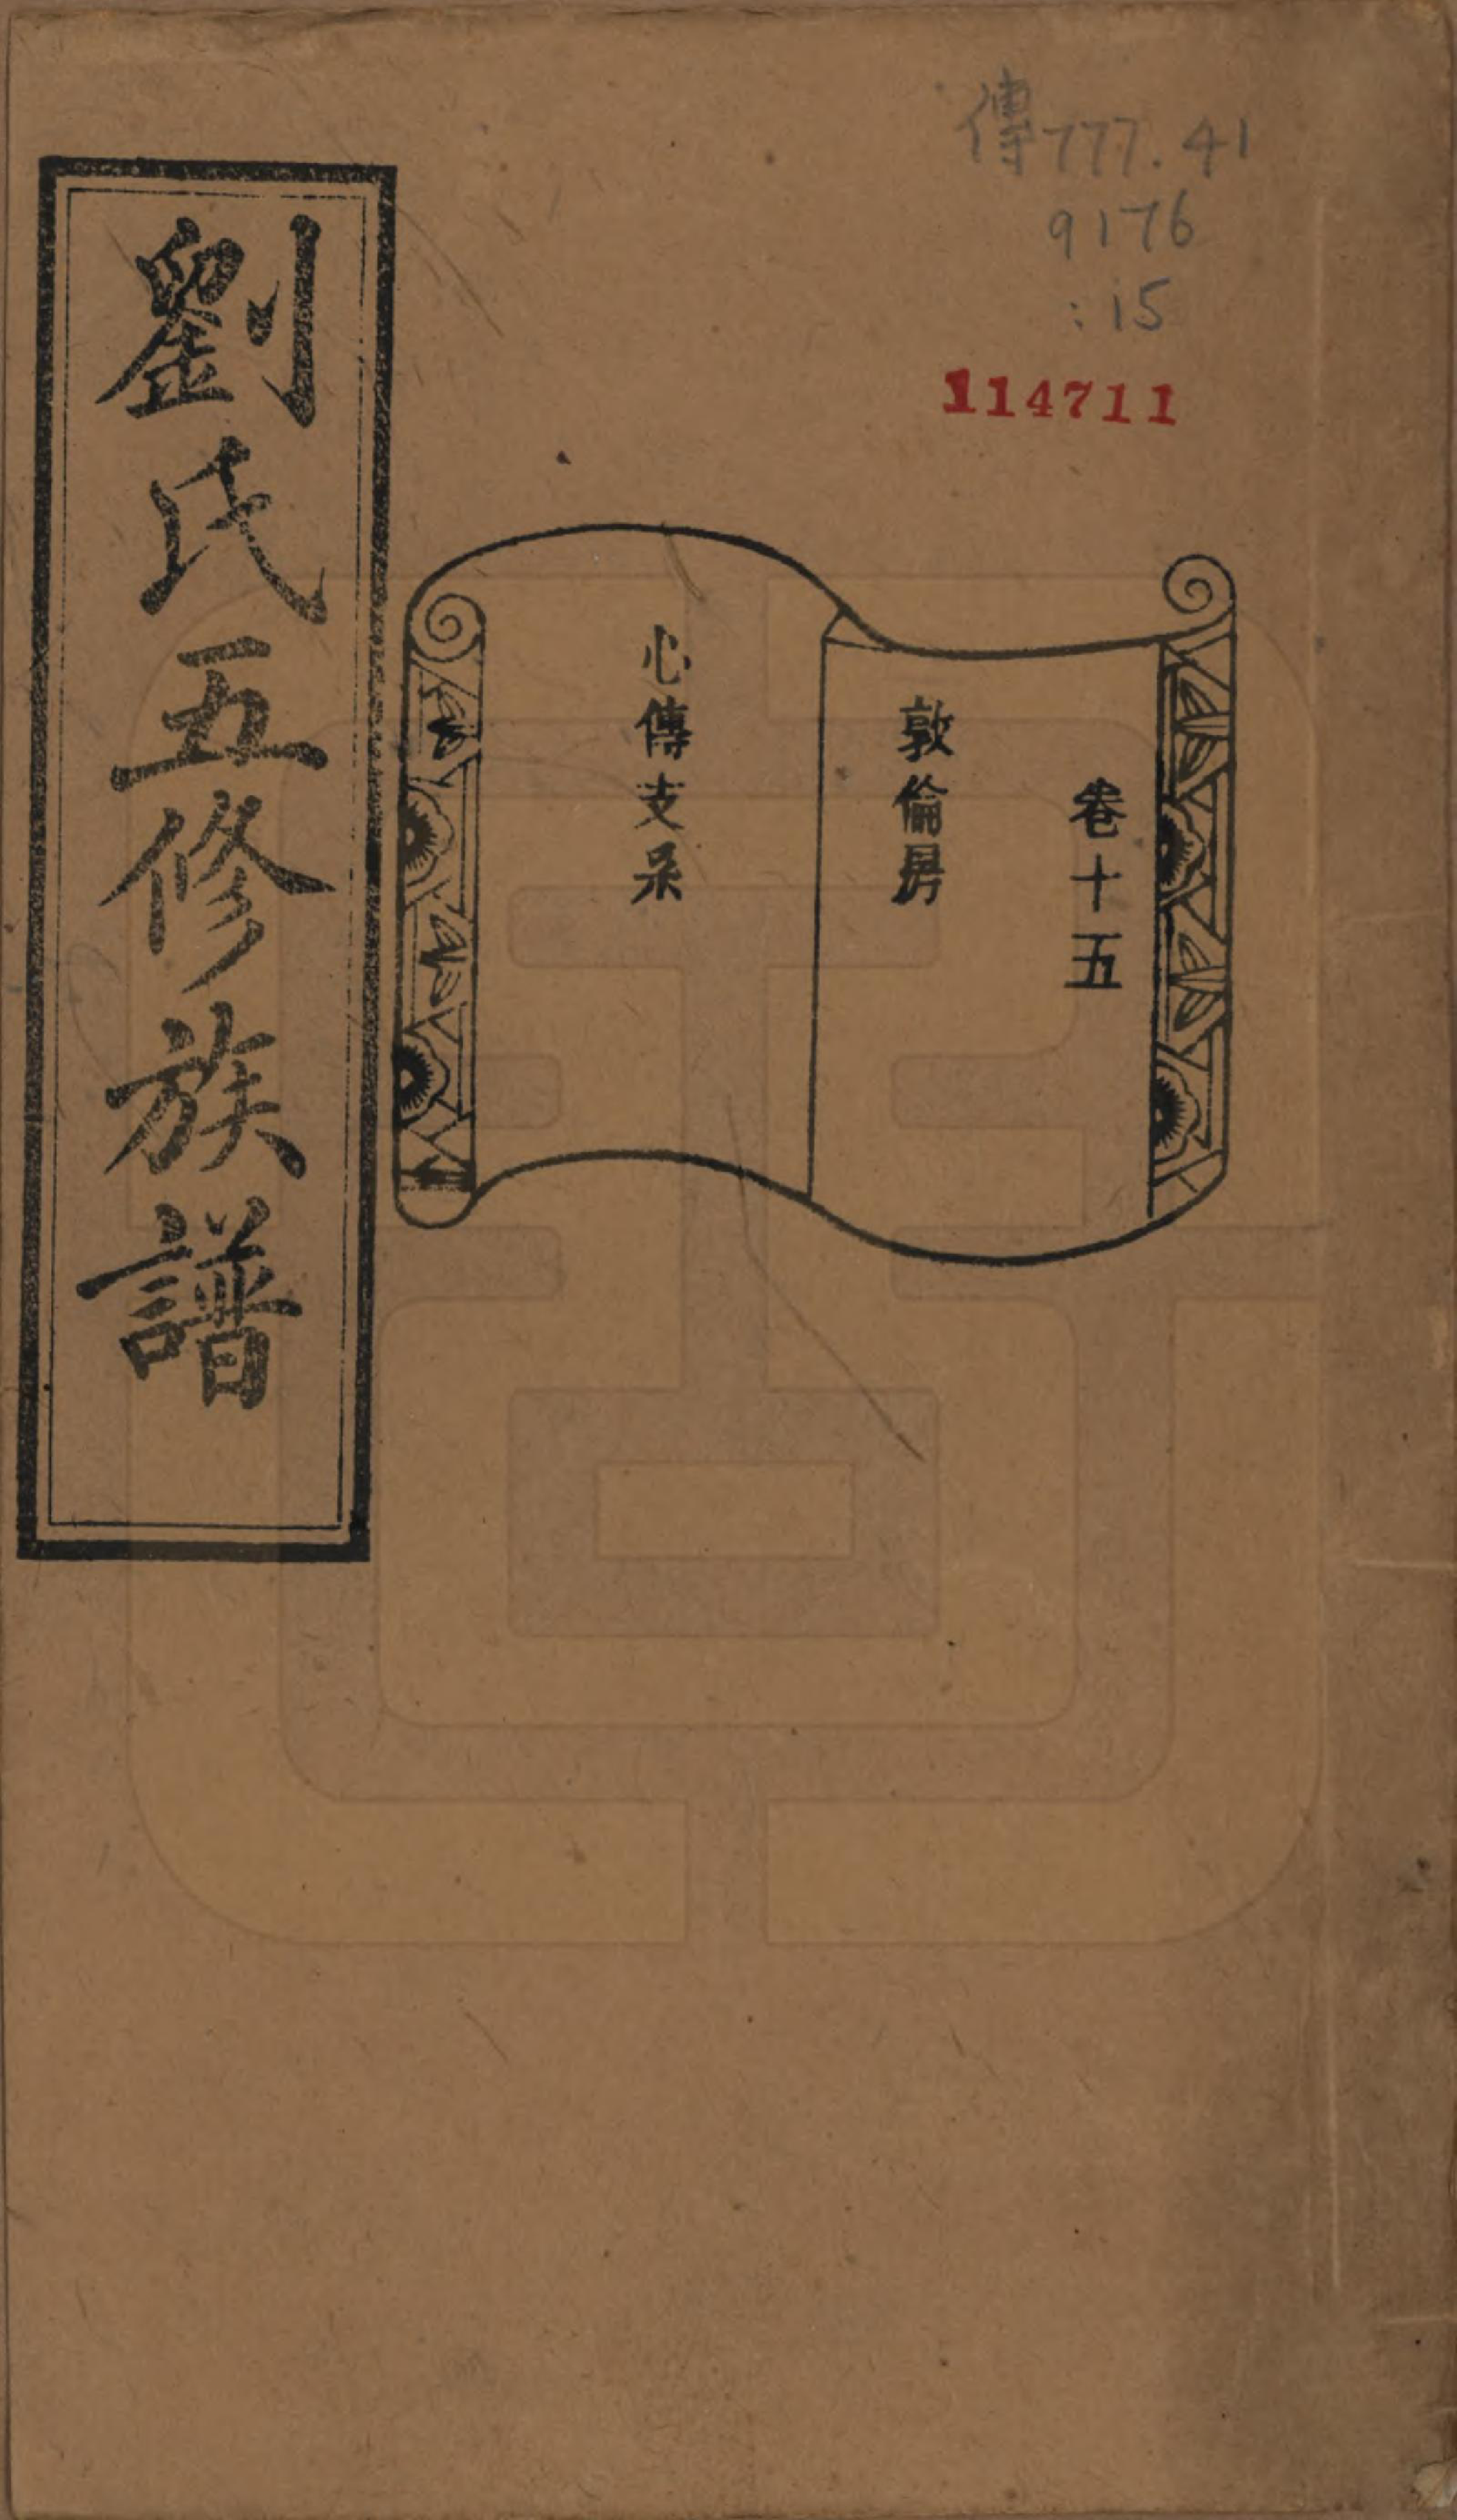 傳777.41
9176
:15
114711
卷十五
敦倫房
心傳支系
劉氏五修族譜